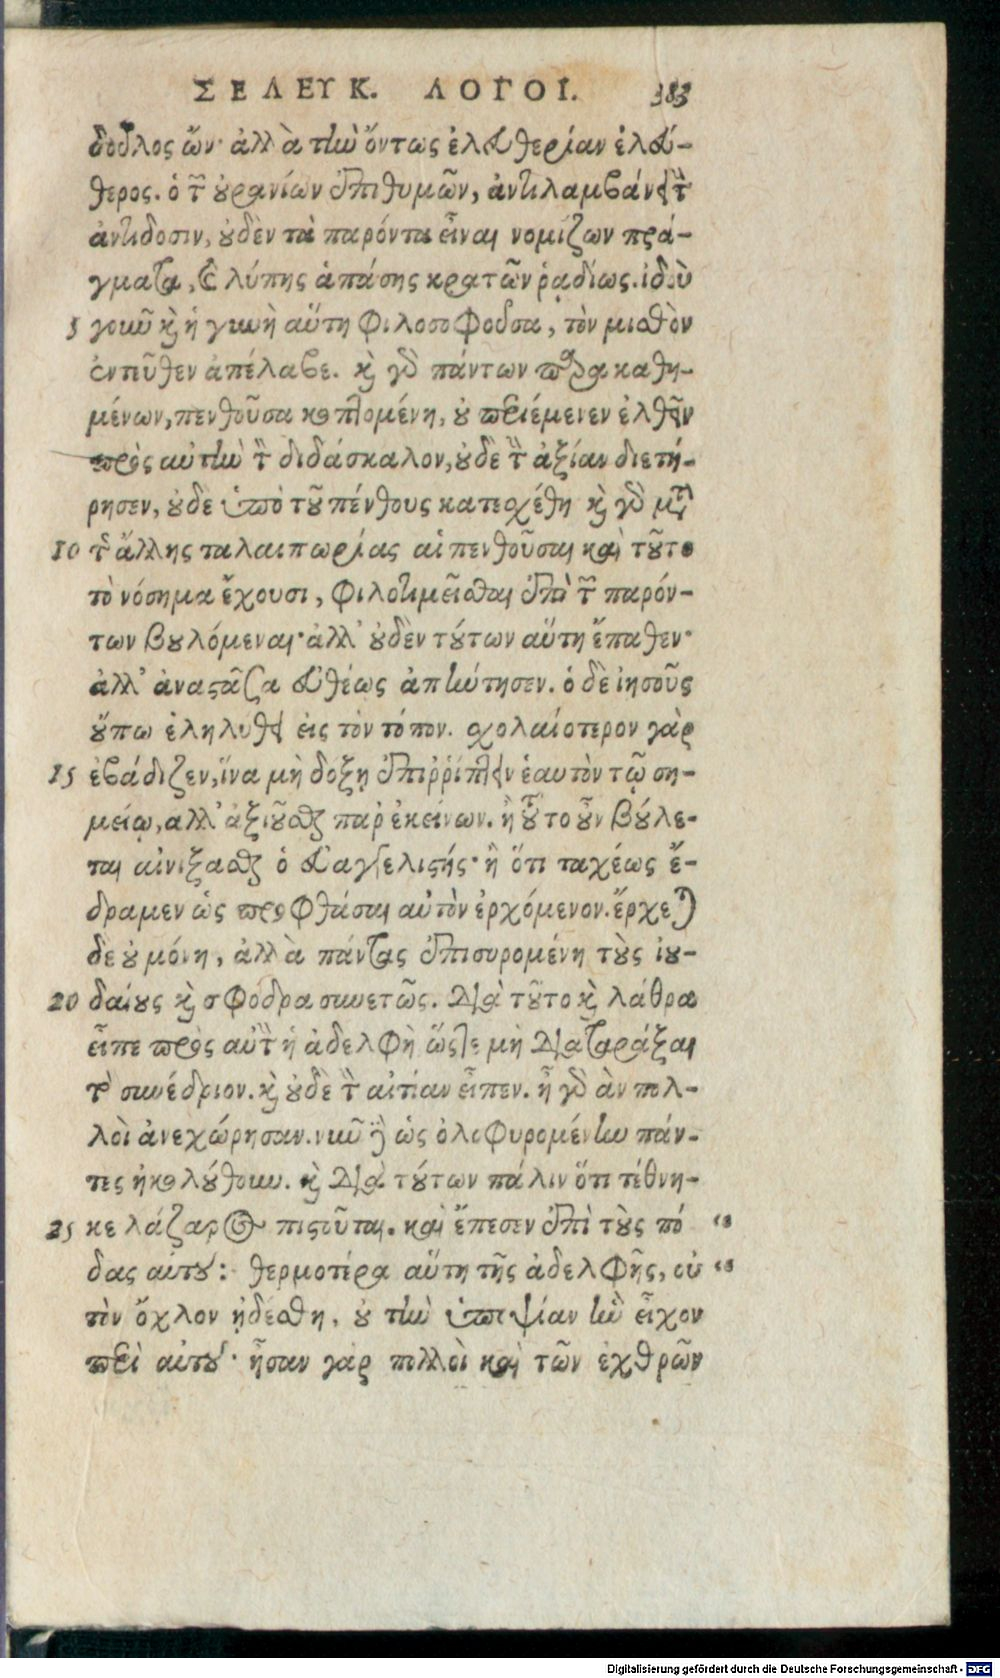 ΣΕΛΕΥΚ. ΛΟΓΟΙ. 383
δοῦλος ὤν· ἀλλὰ τὴν ὄντως ἐλευθερίαν ἐλεύ-
θερος. ὁ τ͂ οὐρανίων ἐπιθυμῶν, ἀντιλαμβάνει τ̀
ἀντίδοσιν, οὐδὲν τὰ παρόντα εἶναι νομίζων πρά-
γματα, καὶ λύπης ἁπάσης κρατῶν ῥᾳδίως. ἰδοὺ
5 γοιωῦ κὶ ἡ γυνὴ αὕτη φιλοσοφοῦσα, τὸν μισθὸν
ἐντεῦθεν ἀπέλαβε. κὶ γὸ πάντων παρακαθη-
μένων, πενθοῦσα κοπτομένη, οὐ περιέμενεν ἐλθεῖν
πρὸς αὐτὴν τ̀ διδάσκαλον, οὐδὲ τ̀ ἀξίαν διετή-
ρησεν, οὐδὲ ὑπὸ τοῦ πένθους κατεσχέθη κὶ γὸ μτ̀
10 τ̂ ἄλλης ταλαιπωρίας αἱ πενθοῦσαι καὶ τοῦτο
τὸ νόσημα ἔχουσι, φιλοτιμεῖσθαι ἐπὶ τ͂ παρόν-
των βουλόμεναι· ἀλλ' οὐδὲν τούτων αὕτη ἔπαθεν·
ἀλλ' ἀναστᾶσα εὐθέως ἀπήντησεν. ὁ δὲ ἰησοῦς
οὔπω ἐληλύθει εἰς τὸν τόπον. σχολαιότερον γὰρ
15 ἐβάδιζεν, ἵνα μὴ δόξῃ ἐπιῤῥίπτειν ἑαυτὸν τῷ ση-
μείῳ, ἀλλ' ἀξιοῦσθζ παρ' ἐκείνων. ἢ τοῦτο οὖν βούλε-
ται αἰνίξασθζ ὁ εὐαγγελιστής· ἢ ὅτι ταχέως ἔ-
δραμεν ὡς προφθάσαι αὐτὸν ἐρχόμενον. ἔρχεται
δὲ οὐ μόνη, ἀλλὰ πάντας ἐπισυρομένη τοὺς ἰου-
20 δαίους κὶ σφόδρα συνετῶς. διὰ τοῦτο κὶ λάθρα
εἶπε πρὸς αὐτ̀ ἡ ἀδελφὴ ὥστε μὴ διαταράξαι
τὸ συνέδριον. κὶ οὐδὲ τ̀ αἰτίαν εἶπεν. ἦ γὸ ἂν πολ-
λοὶ ἀνεχώρησαν. νιωῦ δὲ ὡς ὀλοφυρομένην πάν-
τες ἠκολούθουν. κὶ διὰ τούτων πάλιν ὅτι τέθνη-
25 κε λάζαρος πιστοῦται. καὶ ἔπεσεν ἐπὶ τοὺς πό "
δας αὐτοῦ: θερμοτέρα αὕτη τῆς ἀδελφῆς, οὐ "
τὸν ὄχλον ᾐδέσθη, οὐ τὴν ὑποψίαν ἣν εἶχον
περὶ αὐτοῦ· ἦσαν γὰρ πολλοὶ καὶ τῶν ἐχθρῶν
Digitalisierung gefördert durch die Deutsche Forschungsgemeinschaft - DFG